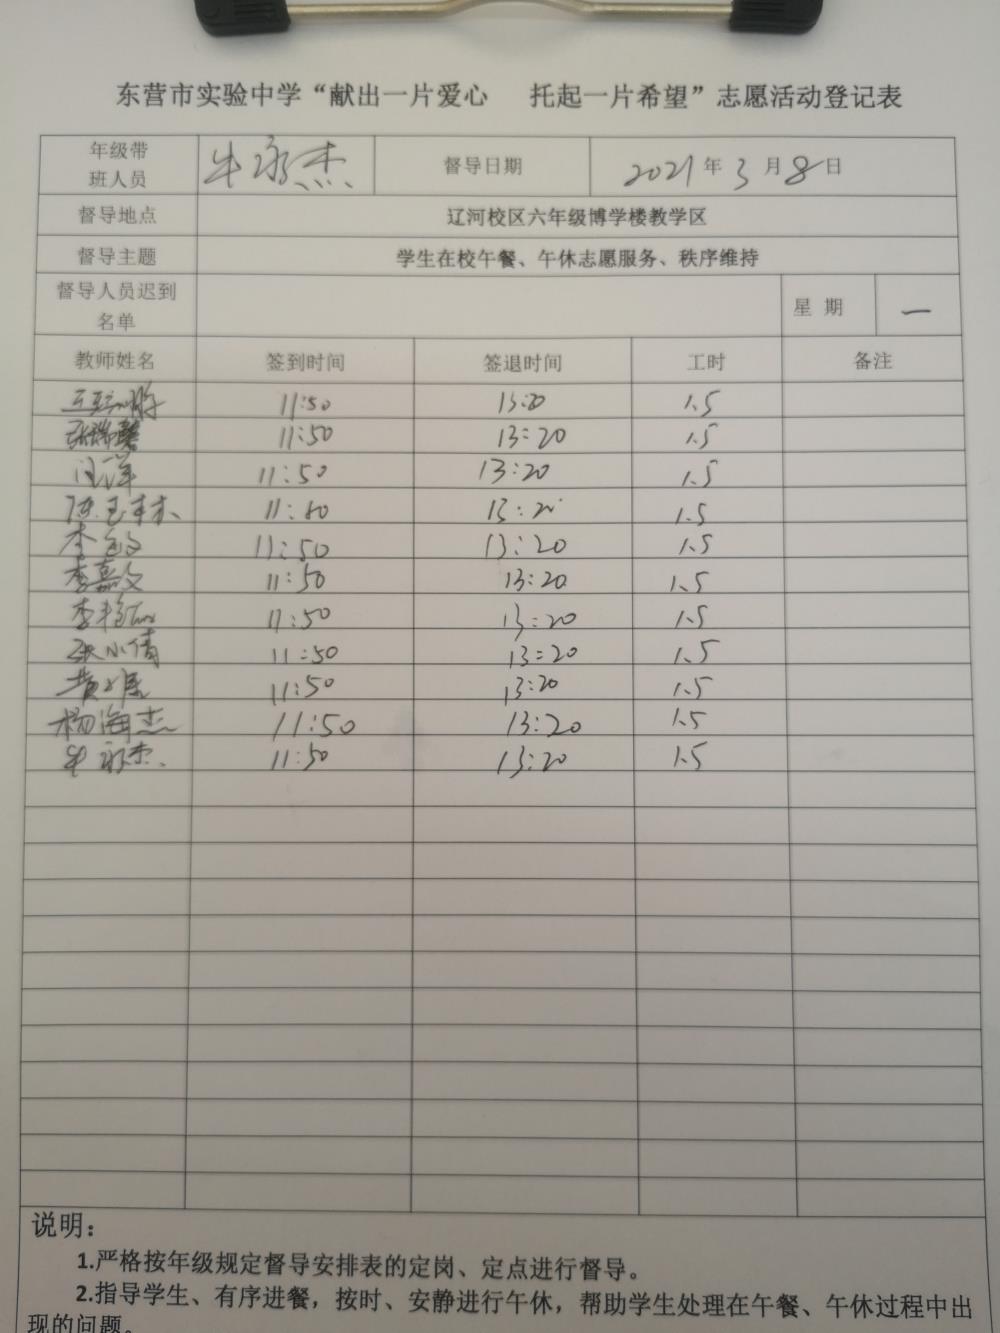 东营市实验中学“献出一片爱心 托起一片希望”志愿活动登记表
年级带班人员 牛永杰 督导日期 2021年3月8日
督导地点 辽河校区六年级博学楼教学区
督导主题 学生在校午餐、午休志愿服务、秩序维持
督导人员迟到名单 星期 一
教师姓名 签到时间 签退时间 工时 备注
11:50 13:20 1.5
张瑞馨 11:50 13:20 1.5
闫洋 11:50 13:20 1.5
陈玉 11:50 13:20 1.5
李 11:50 13:20 1.5
李嘉文 11:50 13:20 1.5
李艳 11:50 13:20 1.5
张小倩 11:50 13:20 1.5
黄 11:50 13:20 1.5
杨海杰 11:50 13:20 1.5
牛永杰 11:50 13:20 1.5
说明：
1.严格按年级规定督导安排表的定岗、定点进行督导。
2.指导学生、有序进餐，按时、安静进行午休，帮助学生处理在午餐、午休过程中出
现的问题。